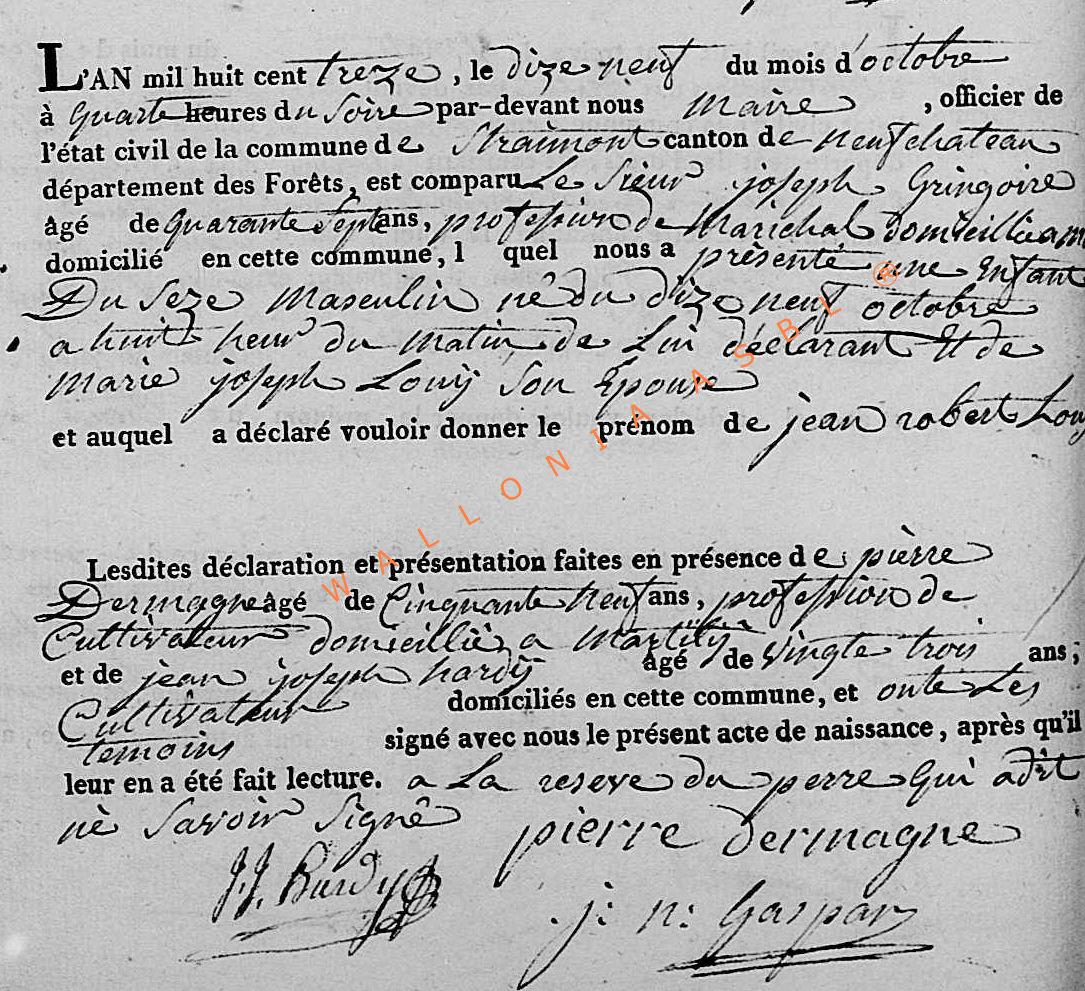 L'AN mil huit cent treze, le dize neuf du mois d'octobre
à quarte heures du soire par-devant nous Maire, officier de
l'état civil de la commune de Straimont canton de neufchateau
département des Forêts, est comparu Le Sieur joseph Gringoire
âgé de quarante Sept ans, profession de Marichal domicillié a m
domicilié en cette commune, l quel nous a présenté une Enfant
Du Seze Masculin né du dize neuf octobre
a huit heur du Matin de Lui déclarant Et de
Marie joseph Louÿ Son Epouse
et auquel a déclaré vouloir donner le prénom de jean robert Louÿ
Lesdites déclaration et présentation faites en présence de pièrre
Dermagne âgé de Cinquante Neuf ans, profession de
Cultivateur domicillié a Martilÿ
et de jean joseph hardÿ âgé de vingte trois ans;
Cultivateur domiciliés en cette commune, et onte Les
temoins signé avec nous le présent acte de naissance, après qu'il
leur en a été fait lecture. a La reserve du perre qui a dit
nè Savoir Signê
pierre dermagne
J.J. Hardy
j: n: Gaspar
WALLONIA ASBL ®